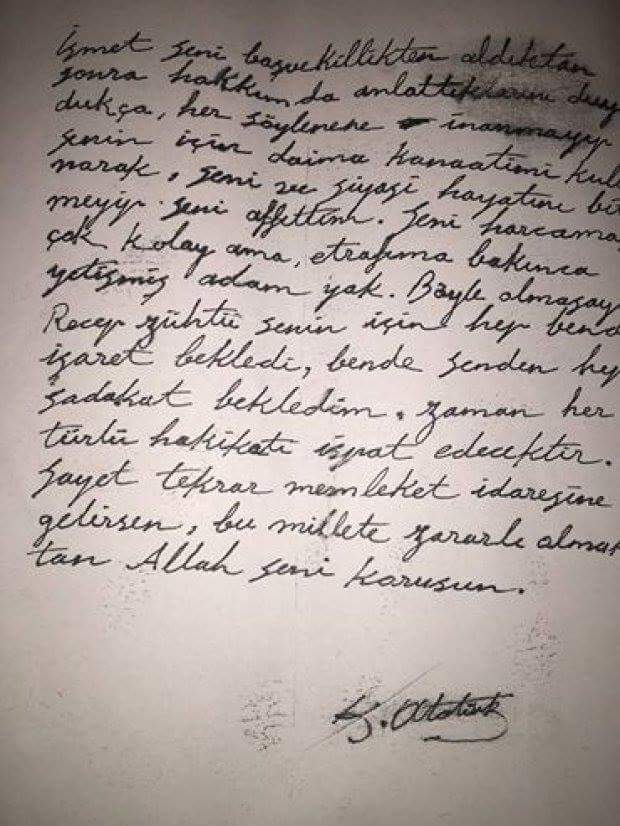 İşmet şeni başvekillikten aldıktan
şonra hakkında anlattıklarını duy
dukça, her şöylenene inanmayıp
şenin için daima kanaatimi kull
narak, şeni ve şiyaşi hayatını bit
meyip şeni affettim. Şeni harcama
çok kolay ama, etrafıma bakınca
yetişmiş adam yok. Böyle olmaşay
Recep Zühtü şenin için hep bend
işaret bekledi, bende şenden hep
şadakat bekledim. zaman her
türlü hakikatı işpat edecektir.
Şayet tekrar memleket idareşine
gelirsen, bu millete zararlı olmak
tan Allah şeni koruşun.
K. Atatürk